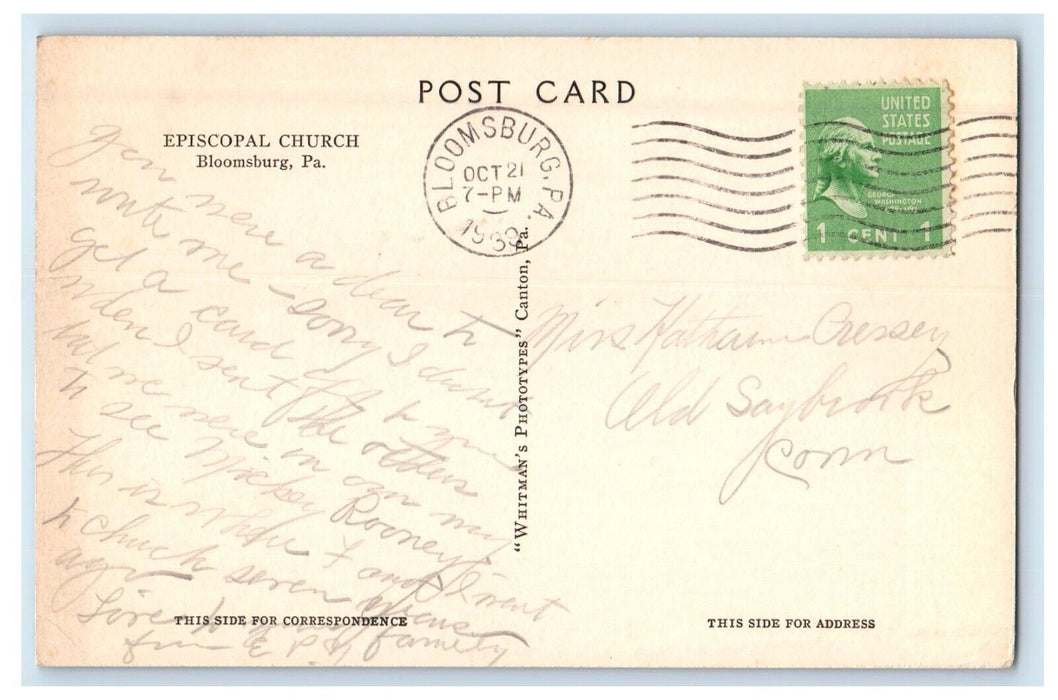 POST CARD
EPISCOPAL CHURCH
Bloomsburg, Pa.
BLOOMSBURG, PA.
OCT 21
7-PM
1939
UNITED
STATES
POSTAGE
GEORGE
WASHINGTON
1 CENT 1
were a dear to
write me – sorry I didn't
get a card off to you
when I sent the others
but we were in our way
to see Mickey Rooney
This is where I went
to church seven years
ago
Love to family
from
"WHITMAN'S PHOTOTYPES" Canton, Pa.
Miss Katharine Cressey
Old Saybrook
Conn
THIS SIDE FOR CORRESPONDENCE
THIS SIDE FOR ADDRESS